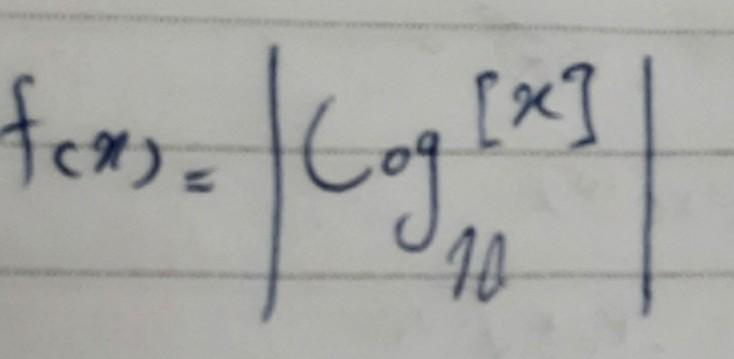 f(x) = | Log₁₀^[x] |